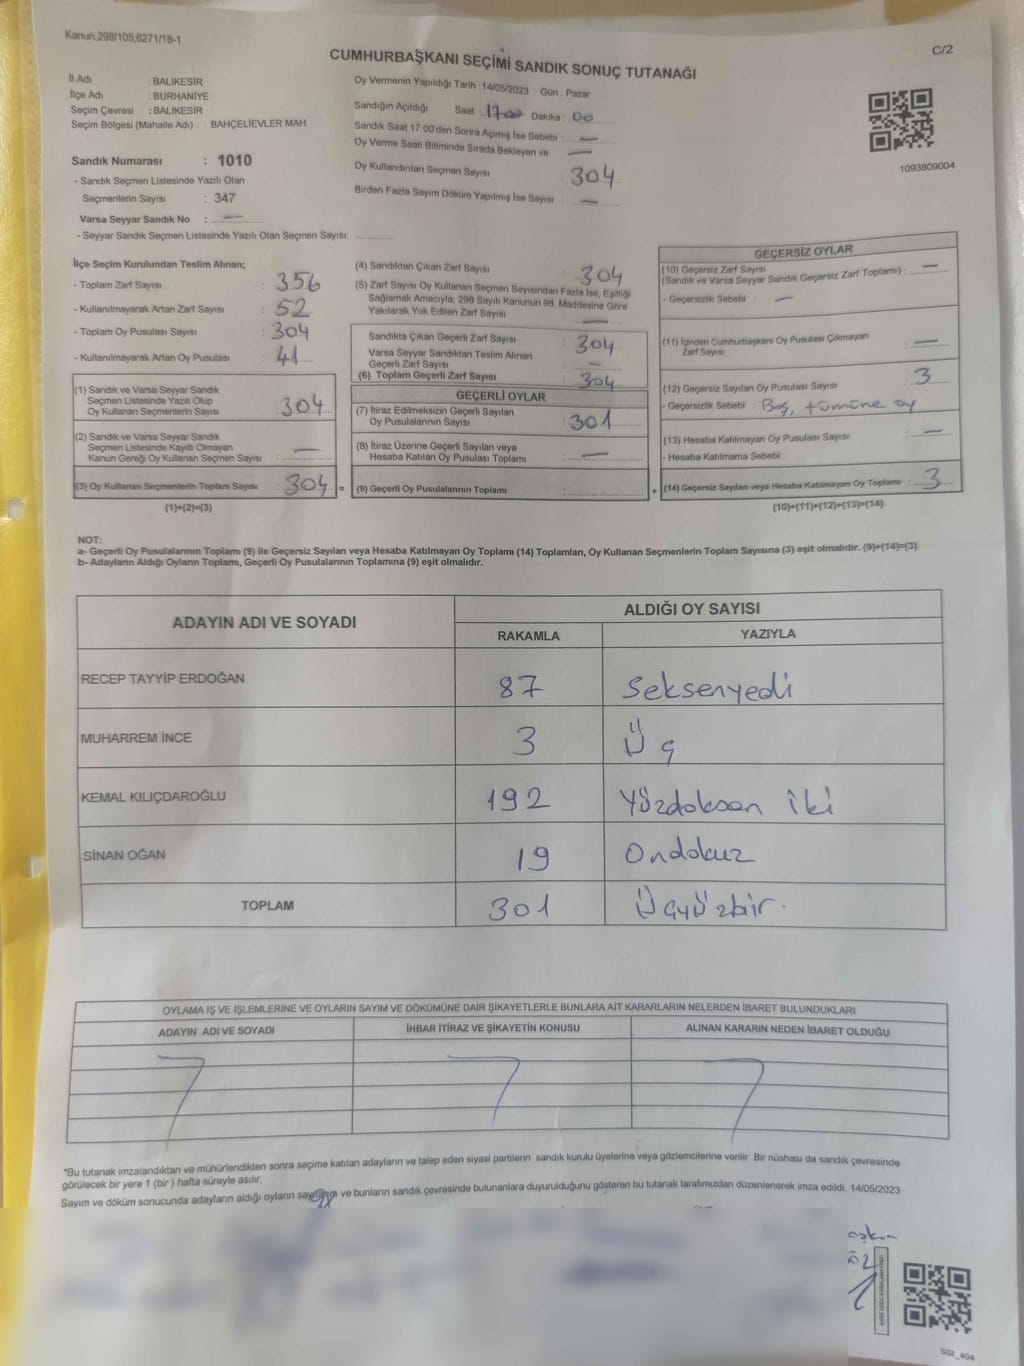 Kanun;298/105,6271/18-1
C/2
CUMHURBAŞKANI SEÇİMİ SANDIK SONUÇ TUTANAĞI
İl Adı : BALIKESİR
İlçe Adı : BURHANİYE
Seçim Çevresi : BALIKESİR
Seçim Bölgesi (Mahalle Adı) : BAHÇELİEVLER MAH.
Sandık Numarası : 1010
- Sandık Seçmen Listesinde Yazılı Olan
Seçmenlerin Sayısı : 347
Varsa Seyyar Sandık No : —
- Seyyar Sandık Seçmen Listesinde Yazılı Olan Seçmen Sayısı: ..............
Oy Vermenin Yapıldığı Tarih : 14/05/2023 Gün : Pazar
Sandığın Açıldığı Saat : 1700 Dakika : 00
Sandık Saat 17.00'den Sonra Açımış İse Sebebi : —
Oy Verme Saati Bitiminde Sırada Bekleyen ve —
Oy Kullandırılan Seçmen Sayısı : 304
Birden Fazla Sayım Döküm Yapılmış İse Sayısı : —
1093809004
İlçe Seçim Kurulundan Teslim Alınan;
- Toplam Zarf Sayısı : 356
- Kullanılmayarak Artan Zarf Sayısı : 52
- Toplam Oy Pusulası Sayısı : 304
- Kullanılmayarak Artan Oy Pusulası : 41
(1) Sandık ve Varsa Seyyar Sandık
Seçmen Listesinde Yazılı Olup
Oy Kullanan Seçmenlerin Sayısı : 304
(2) Sandık ve Varsa Seyyar Sandık
Seçmen Listesinde Kayıtlı Olmayan
Kanun Gereği Oy Kullanan Seçmen Sayısı : —
(3) Oy Kullanan Seçmenlerin Toplam Sayısı : 304 =
(1)+(2)=(3)
(4) Sandıktan Çıkan Zarf Sayısı : 304
(5) Zarf Sayısı Oy Kullanan Seçmen Sayısından Fazla İse, Eşitliği
Sağlamak Amacıyla, 298 Sayılı Kanunun 98. Maddesine Göre
Yakılarak Yok Edilen Zarf Sayısı : —
Sandıkta Çıkan Geçerli Zarf Sayısı : 304
Varsa Seyyar Sandıktan Teslim Alınan
Geçerli Zarf Sayısı : —
(6) Toplam Geçerli Zarf Sayısı : 304
GEÇERLİ OYLAR
(7) İtiraz Edilmeksizin Geçerli Sayılan
Oy Pusulalarının Sayısı : 301
(8) İtiraz Üzerine Geçerli Sayılan veya
Hesaba Katılan Oy Pusulası Toplamı : —
(9) Geçerli Oy Pusulalarının Toplamı : .................. +
GEÇERSİZ OYLAR
(10) Geçersiz Zarf Sayısı
(Sandık ve Varsa Seyyar Sandık Geçersiz Zarf Toplamı) : —
- Geçersizlik Sebebi : —
(11) İçinden Cumhurbaşkanı Oy Pusulası Çıkmayan
Zarf Sayısı : —
(12) Geçersiz Sayılan Oy Pusulası Sayısı : 3
- Geçersizlik Sebebi : Boş, tümüne oy
(13) Hesaba Katılmayan Oy Pusulası Sayısı : —
- Hesaba Katılmama Sebebi :
(14) Geçersiz Sayılan veya Hesaba Katılmayan Oy Toplamı : 3
(10)+(11)+(12)+(13)=(14)
NOT:
a- Geçerli Oy Pusulalarının Toplamı (9) ile Geçersiz Sayılan veya Hesaba Katılmayan Oy Toplamı (14) Toplamları, Oy Kullanan Seçmenlerin Toplam Sayısına (3) eşit olmalıdır. (9)+(14)=(3)
b- Adayların Aldığı Oyların Toplamı, Geçerli Oy Pusulalarının Toplamına (9) eşit olmalıdır.
ADAYIN ADI VE SOYADI
ALDIĞI OY SAYISI
RAKAMLA YAZIYLA
RECEP TAYYİP ERDOĞAN 87 Seksenyedi
MUHARREM İNCE 3 Üç
KEMAL KILIÇDAROĞLU 192 Yüzdoksan iki
SİNAN OĞAN 19 Ondokuz
TOPLAM 301 Üçyüzbir.
OYLAMA İŞ VE İŞLEMLERİNE VE OYLARIN SAYIM VE DÖKÜMÜNE DAİR ŞİKAYETLERLE BUNLARA AİT KARARLARIN NELERDEN İBARET BULUNDUKLARI
ADAYIN ADI VE SOYADI İHBAR İTİRAZ VE ŞİKAYETİN KONUSU ALINAN KARARIN NEDEN İBARET OLDUĞU
*Bu tutanak imzalandıktan ve mühürlendikten sonra seçime katılan adayların ve talep eden siyasi partilerin sandık kurulu üyelerine veya gözlemcilerine verilir. Bir nüshası da sandık çevresinde
görülecek bir yere 1 (bir ) hafta süreyle asılır.
Sayım ve döküm sonucunda adayların aldığı oyların sayılarını ve bunların sandık çevresinde bulunanlara duyurulduğunu gösteren bu tutanak tarafımızdan düzenlenerek imza edildi. 14/05/2023
SGI_404